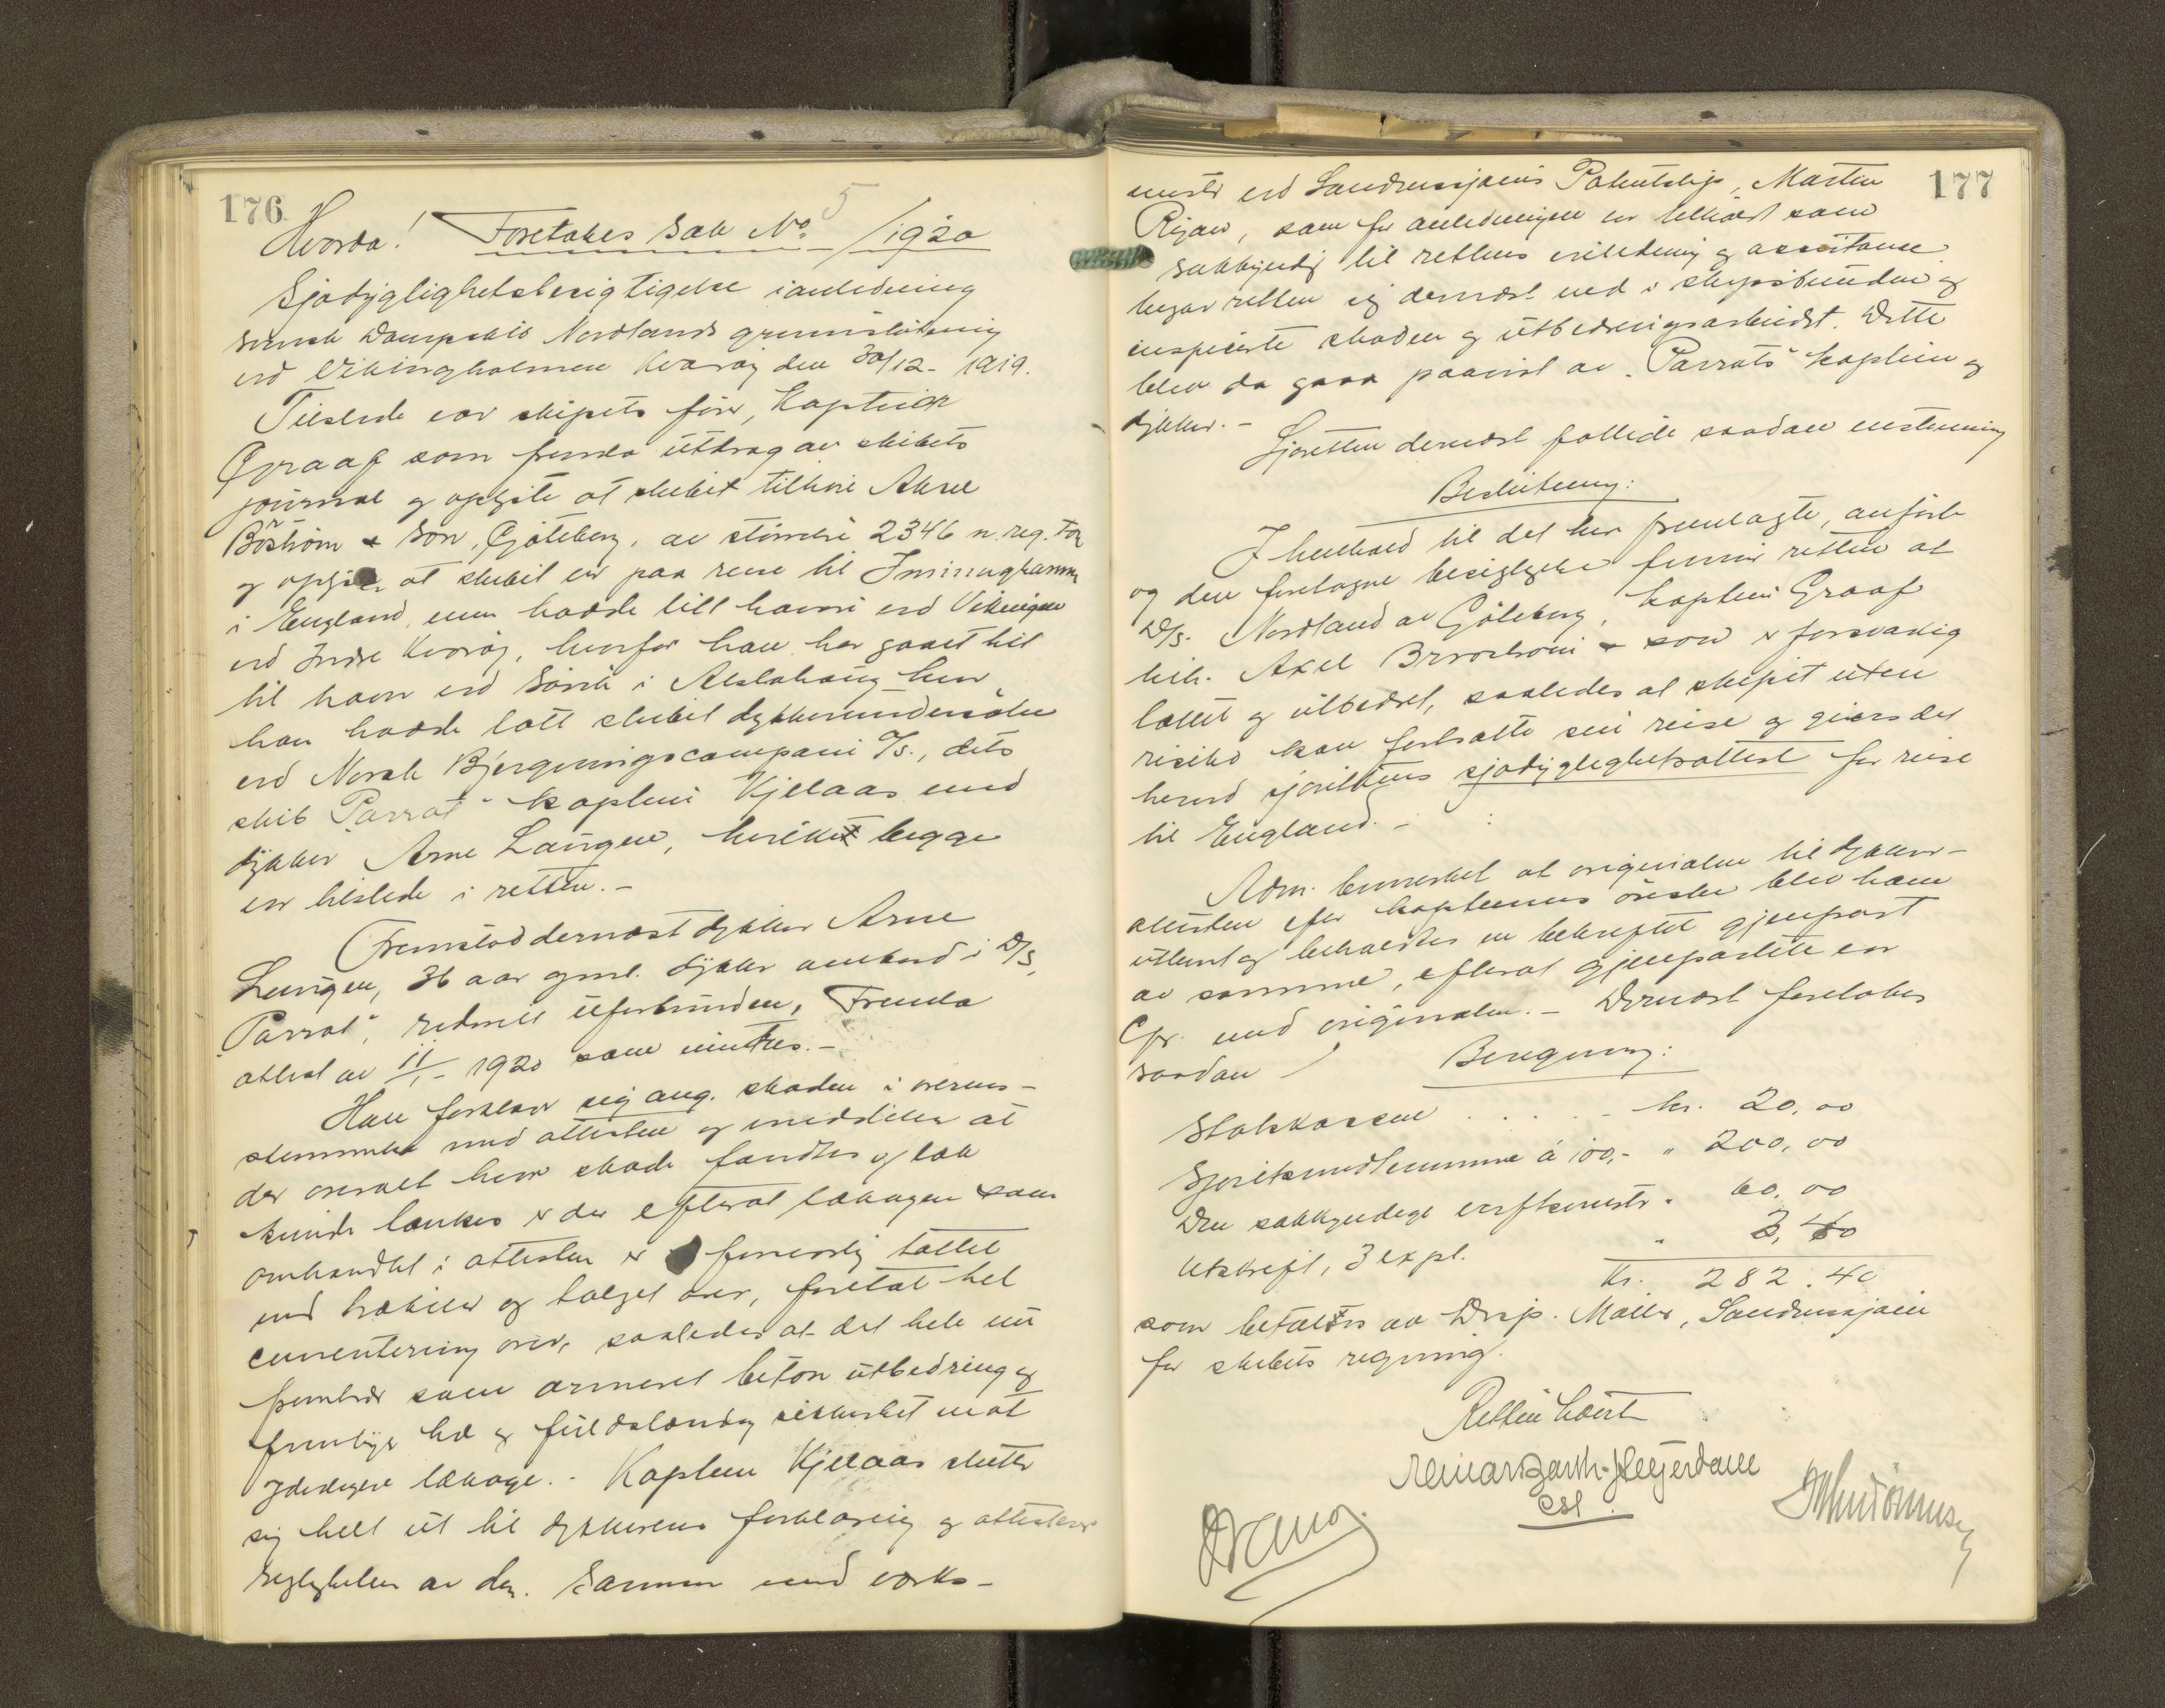 176
Hvorda! Foretokes Sak No. 5/1920
Sjødyglighetsbesigtigelse i anledning
svensk Dampskib Nordlands grunnstøtning
ved Vikingholmen Kvarøy den 30/12- 1919.
Tilstede var skipets fører, Kaptein
Graaf som fremla utdrag av skibets
journal og opgite at skibet tilhøre Aksel
Boström & Son, Gøteborg, av størrelse 2346 n. reg. Ton
og opgir at skibet er paa reise til Imminghamn
i England, men hadde tatt havn ved Vikingen
ved Indre Kvarøy, hvorfor han har gaaet hit
til havn ved Søvik i Alstahaug hvor
han hadde latt skibet dykkerundersøke
ved Norsk Bjergningscompani A/s., dets
skib "Parrat" kaptein Kjelaas med
dykker Arne Langen, hvilket begge
er tilstede i retten.-
Fremstod dernæst dykker Arne
Langen, 36 aar gml. dykker ombord i D/S,
"Parrat", edsvill uforbunden, Fremla
attest av 11/1- 1920 som inntas.-
Han forklarer sig ang. skaden i overens-
stemmelse med attesten og meddeler at
der overalt hvor skade fandtes og læk
kunde tænkes er der efterat lækagen som
omhandlet i attesten er forsvarlig tættet
med trækiler og talget over, foretat hel
cementering over, saaledes at det hele nu
frembær som armeret beton utbedring og
frembyr hel og fuldstændig sikkerhet mot
ydeligere lækage.- Kaptein Kjelaas slutter
sig helt ut til dykkerens forklaring og attesterer
rigtigheten av den. Sammen med verks-
177
mester ved Sandnessjøens Patentslip, Martin
som for anledningen er tilkaldt som
sakkyndig til rettens veiledning og assistance
begav retten sig dernæst ned i skipsbunden og
inspiserte skaden og utbedringsarbeidet. Dette
blev da gaaa paavist av "Parrats" kaptein og
dykker.-
Sjøretten dernæst fattede saadan enstemmig
Beslutning:
I henhold til det her fremlagte, anførte
og den foretagne besigtigelse finner retten at
D/S. Nordland av Gøteborg, kaptein Graaf
tilh. Axel Broström & son er forsvarlig
tættet og utbedret, saaledes at skipet uten
risiko kan fortsætte sin reise og givers det
herved sjørettens sjødyglighetsattest for reise
til England.-
Adm. bemerket at originalen til dykker-
attesten efter kapteinens ønske blev ham
utlevert og beholdtes en bekræftet gjenpart
av samme, efterat gjenparten er
Cfr. med originalen.- Dernæst foretokes
saadan Beregning:
Statskassen . . . . . kr. 20,00
Sjøretsmedlemmene á 100,- " 200,00
Den sakkyndige verftsmester " 60,00
Utskrift, 3 expl. " 2,40
Kr. 282.40
som betaltes av Disp. Møller, Sandnessjøen
for skibets regning.
Retten hævet
Reinar Barth-Heyerdahl
cst.